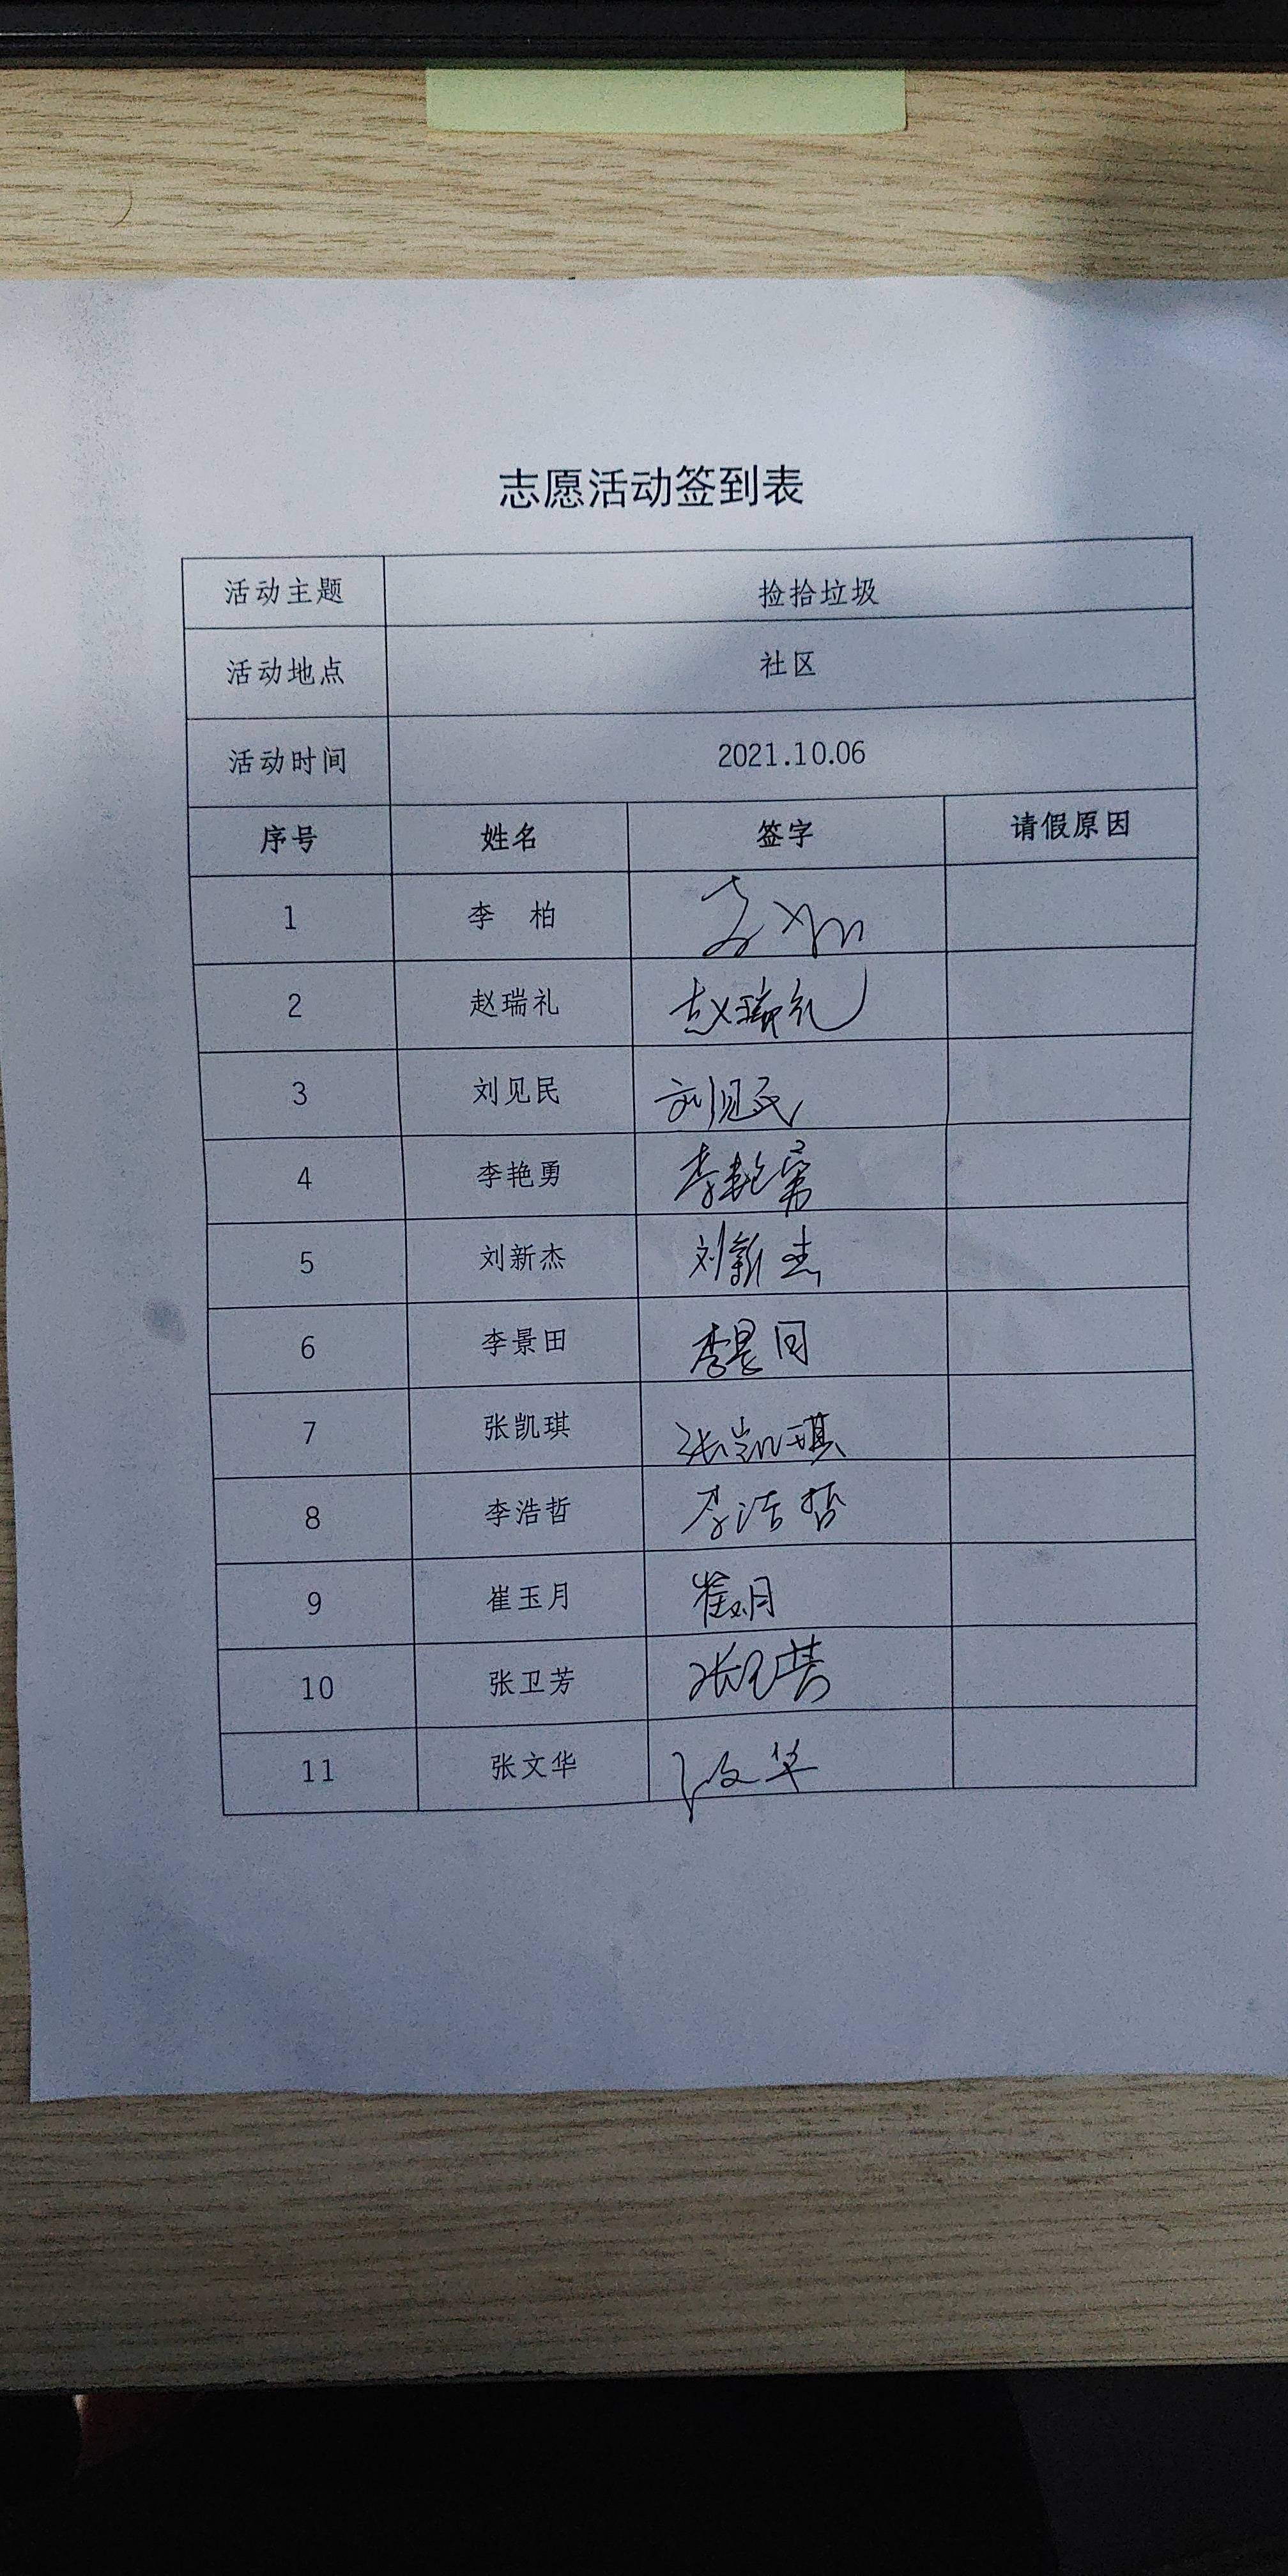 志愿活动签到表
活动主题 捡拾垃圾
活动地点 社区
活动时间 2021.10.06
序号 姓名 签字 请假原因
1 李 柏
2 赵瑞礼 赵瑞礼
3 刘见民 刘见民
4 李艳勇 李艳勇
5 刘新杰 刘新杰
6 李景田 李景田
7 张凯琪 张凯琪
8 李浩哲 李浩哲
9 崔玉月 崔玉月
10 张卫芳 张卫芳
11 张文华 张文华